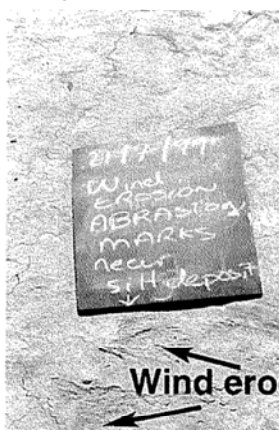 21/7/99
Wind
EROSION
ABRASION
MARKS
near
silt deposit
Wind ero